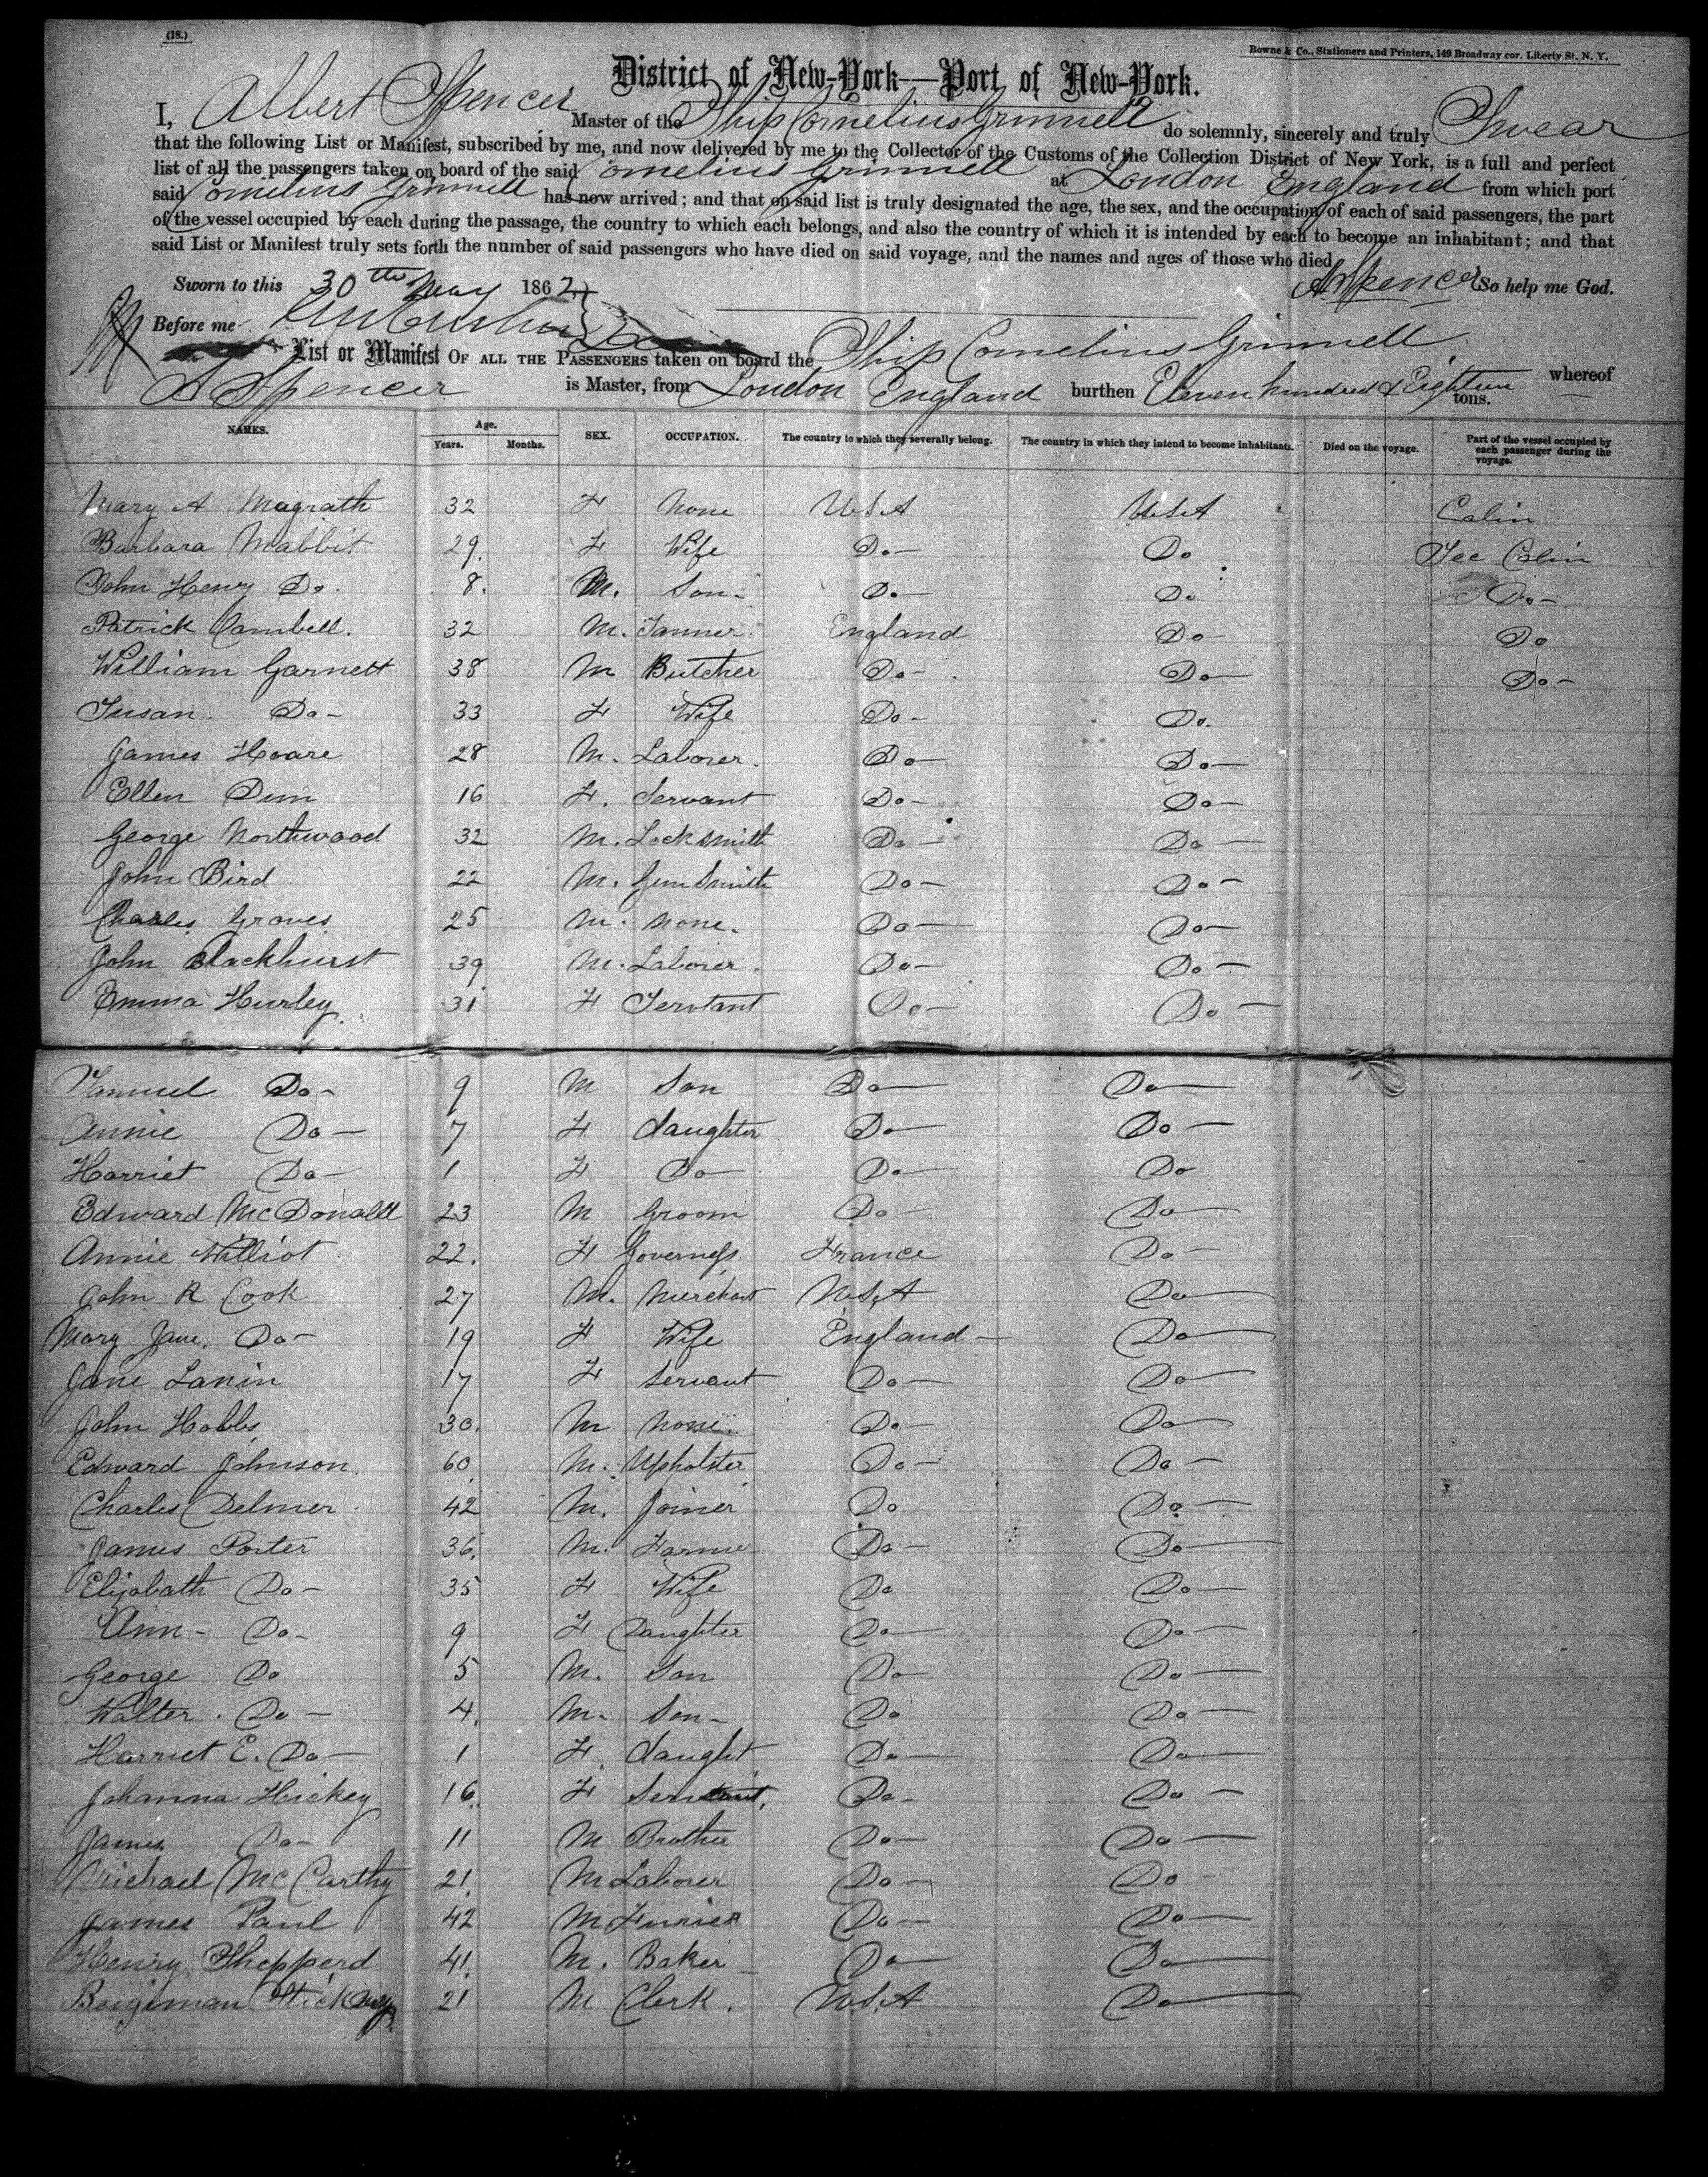 (18.)
Bowne & Co., Stationers and Printers, 149 Broadway cor. Liberty St. N. Y.
District of New-York—Port of New-York.
I, Albert Spencer Master of the Ship Cornelius Grinnell do solemnly, sincerely and truly Swear
that the following List or Manifest, subscribed by me, and now delivered by me to the Collector of the Customs of the Collection District of New York, is a full and perfect
list of all the passengers taken on board of the said Cornelius Grinnell at London England from which port
said Cornelius Grinnell has now arrived; and that on said list is truly designated the age, the sex, and the occupation of each of said passengers, the part
of the vessel occupied by each during the passage, the country to which each belongs, and also the country of which it is intended by each to become an inhabitant; and that
said List or Manifest truly sets forth the number of said passengers who have died on said voyage, and the names and ages of those who died.
Sworn to this 30th May 1862 A Spencer So help me God.
Before me
List or Manifest OF ALL THE PASSENGERS taken on board the Ship Cornelius Grinnell whereof
A Spencer is Master, from London England burthen Eleven hundred & Eighteen tons.
NAMES. Age. Years. Months. SEX. OCCUPATION. The country to which they severally belong. The country in which they intend to become inhabitants. Died on the voyage. Part of the vessel occupied by each passenger during the voyage.
Mary A Magrath 32 F None U.S.A U.S.A Cabin
Barbara Mabbit 29. F Wife Do- Do Sec Cabin
John Henry Do. 8. M. Son- Do- Do Do-
Patrick Cambell. 32 M. Tanner. England Do- Do
William Garnett 38 M Butcher Do- Do- Do-
Susan. Do- 33 F Wife Do- Do.
James Hoare 28 M. Laborer. Do- Do-
Ellen Dun 16 F. Servant Do- Do-
George Northwood 32 M. Locksmith Do- Do-
John Bird 22 M. Gun Smith Do- Do-
Charles Graves 25 M. None. Do- Do-
John Blackhurst 39 M. Laborer. Do- Do-
Emma Hurley. 31 F Servtant Do- Do-
Samuel Do- 9 M Son Do- Do-
Annie Do- 7 F daughter Do- Do-
Harriet Do- 1 F Do- Do- Do
Edward McDonalld 23 M Groom Do- Do-
Annie Williot 22. F Governess France Do-
John R Cook 27 M. Merchant U.S.A Do-
Mary Jane. Do- 19 F Wife England- Do-
Jane Lanin 17 F Servant Do- Do-
John Hobbs 30. M None. Do- Do-
Edward Johnson. 60 M. Upholster Do- Do-
Charles Delmer. 42 M. Joiner Do Do-
James Porter 36. M. Farmer Do- Do-
Elizabath Do- 35 F Wife Do Do-
Ann- Do- 9 F Daughter Do- Do-
George Do 5 M. Son Do Do-
Walter. Do- 4. M. Son- Do Do-
Harriet E. Do- 1 F. daught Do- Do-
Johanna Hickey 16. F Servant. Do- Do-
James Do- 11 M Brother Do- Do-
Michael McCarthy 21. M Laborer Do- Do-
James Paul 42 M Furier Do- Do-
Henry Shepperd 41. M. Baker- Do- Do-
Bengiman Stickney 21 M Clerk. U.S.A Do-